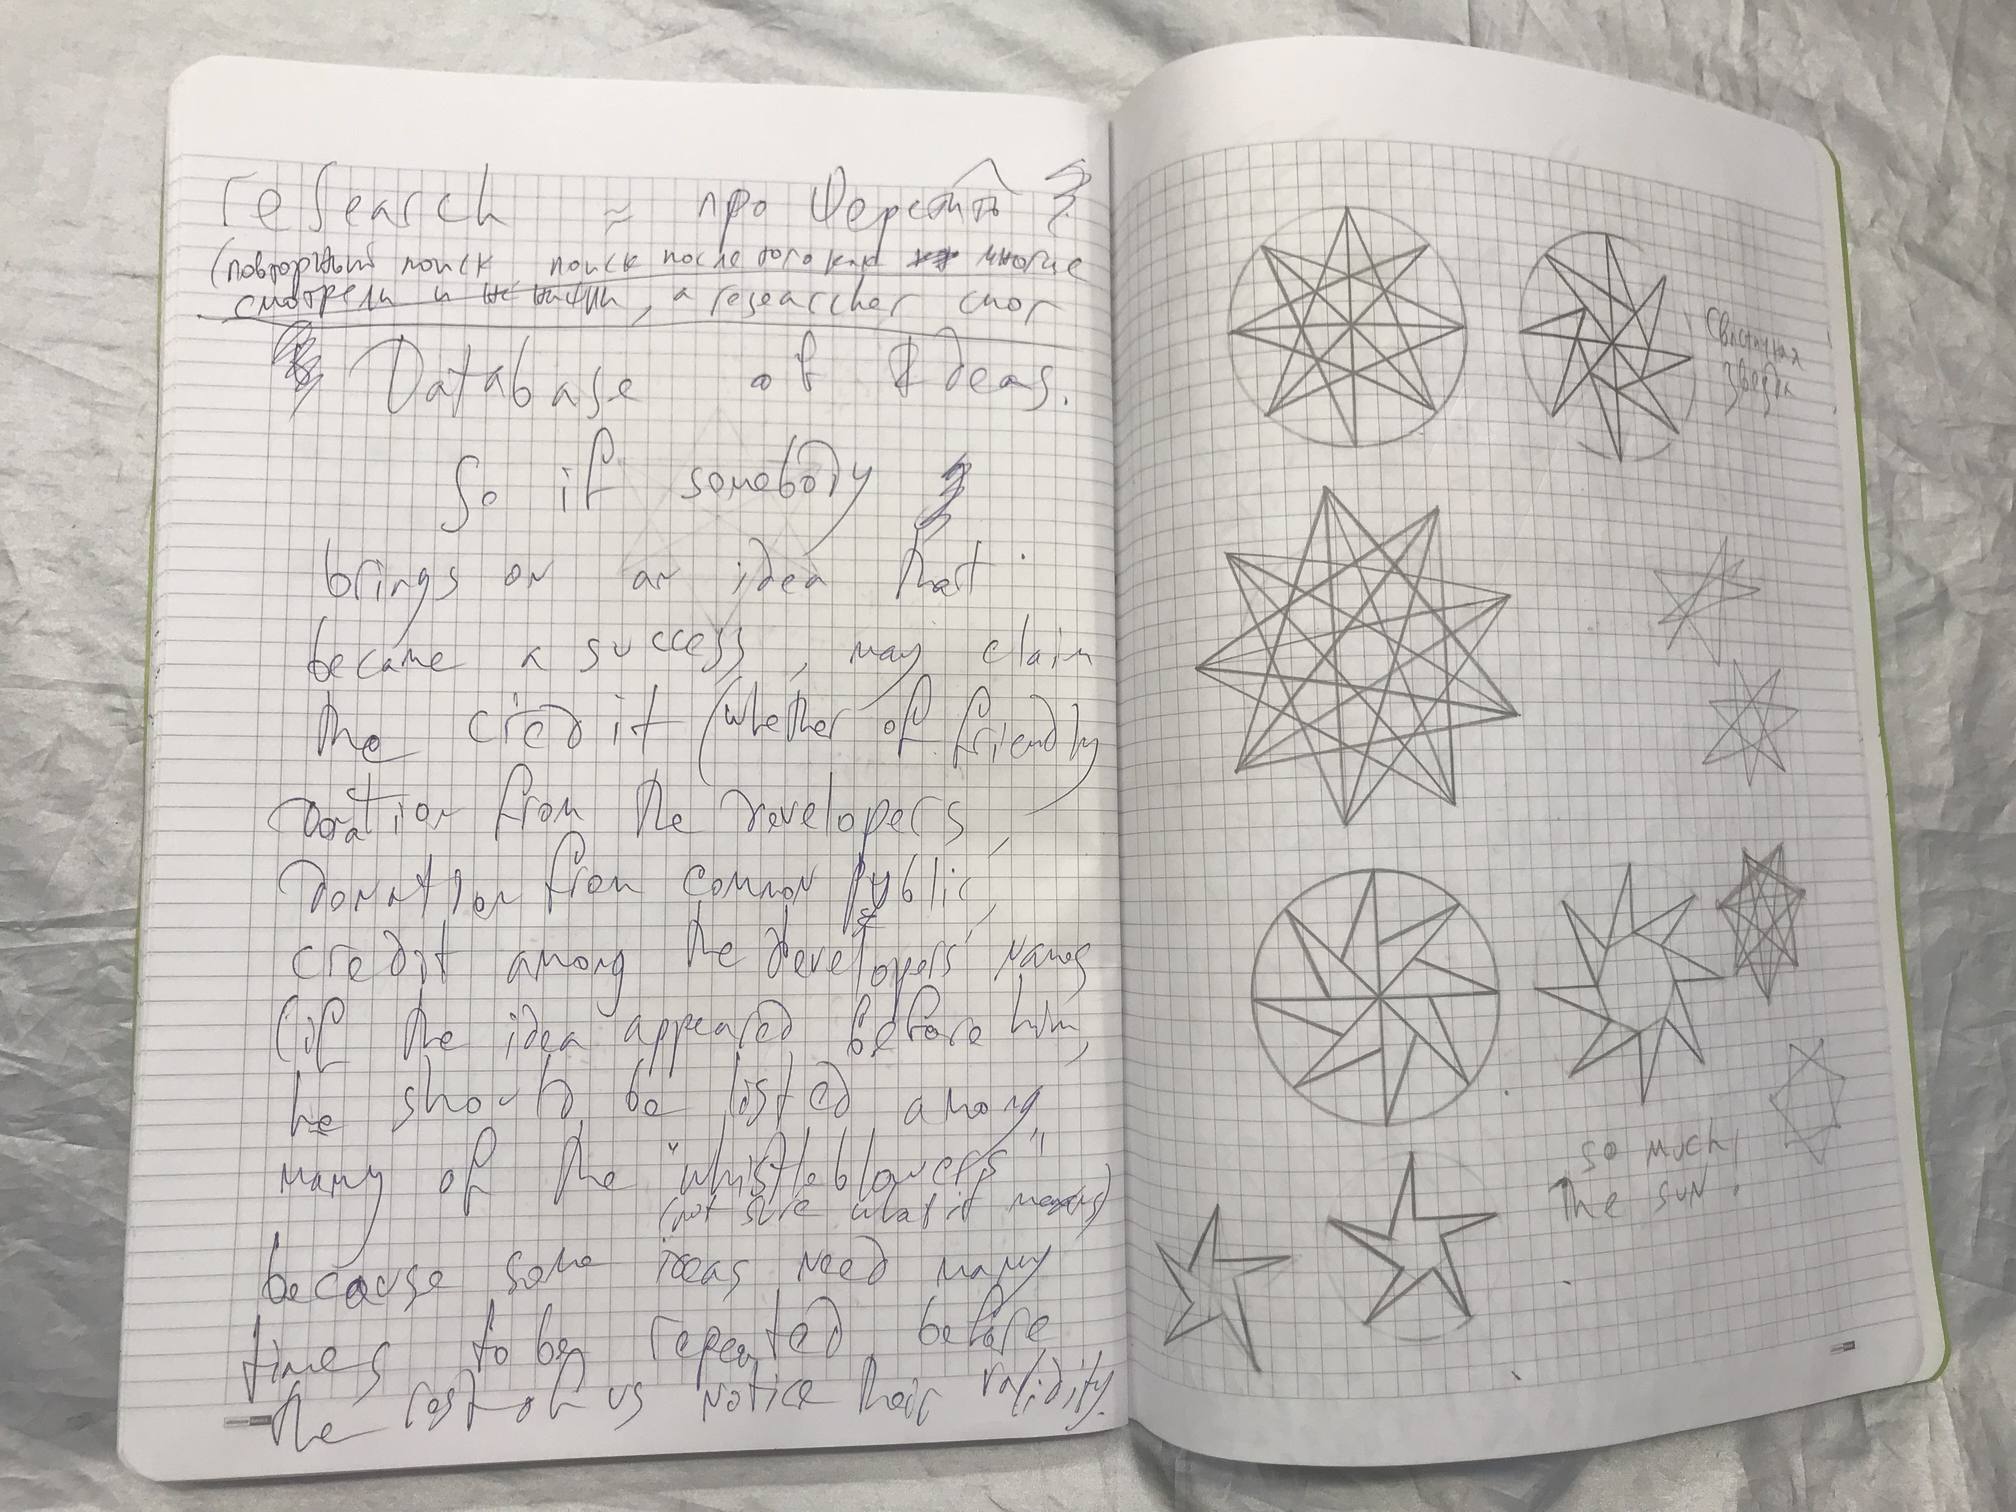 reSearch ≈ про шерстить
(повторный поиск, поиск после того как многие
смотрели и не нашли, а researcher смог
Database of Ideas.
So if somebody
brings on an idea that
became a success, may claim
the credit (whether of friendly
donation from the developers,
donation from common public,
credit among the developers' names
(if the idea appeared before him,
he should be listed among
many of the "whistleblowers"
(not sure what it means)
because some ideas need many
times to be repeated before
the rest of us notice their validity.
звезда
so much,
The sun.